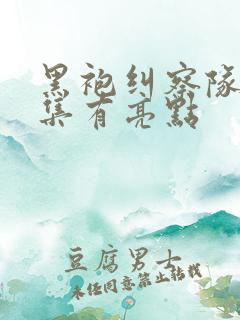 黑袍纠察队
集有亮點
豆腐男士
未经同意禁止转载